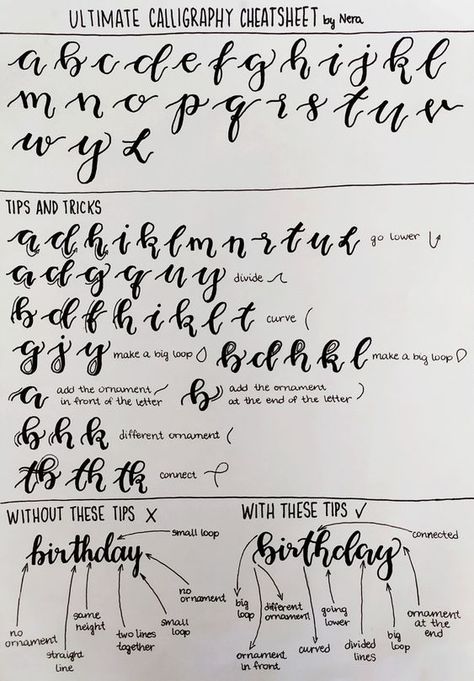 ULTIMATE CALLIGRAPHY CHEATSHEET by Nera
a b c d e f g h i j k l
m n o p q r s t u v
w y z
TIPS AND TRICKS
a d h i k l m n r t u z go lower
a d g q u y divide
b d f h i k l t curve (
g j y make a big loop b d h k l make a big loop
a add the ornament
in front of the letter
b add the ornament
at the end of the letter )
b h k different ornament (
tb th tk connect
WITHOUT THESE TIPS X
small loop
birthday
no
ornament
straight
line
same
height
two lines
together
small
loop
no
ornament
WITH THESE TIPS ✓
connected
birthday
big
loop
ornament
in front
different
ornament
curved
going
lower
divided
lines
big
loop
ornament
at the
end